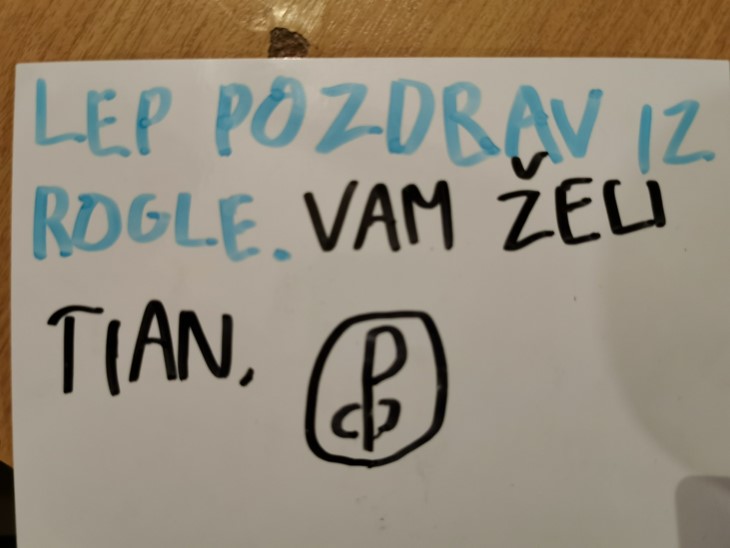 LEP POZDRAV IZ
ROGLE. VAM ŽELI
TIAN.